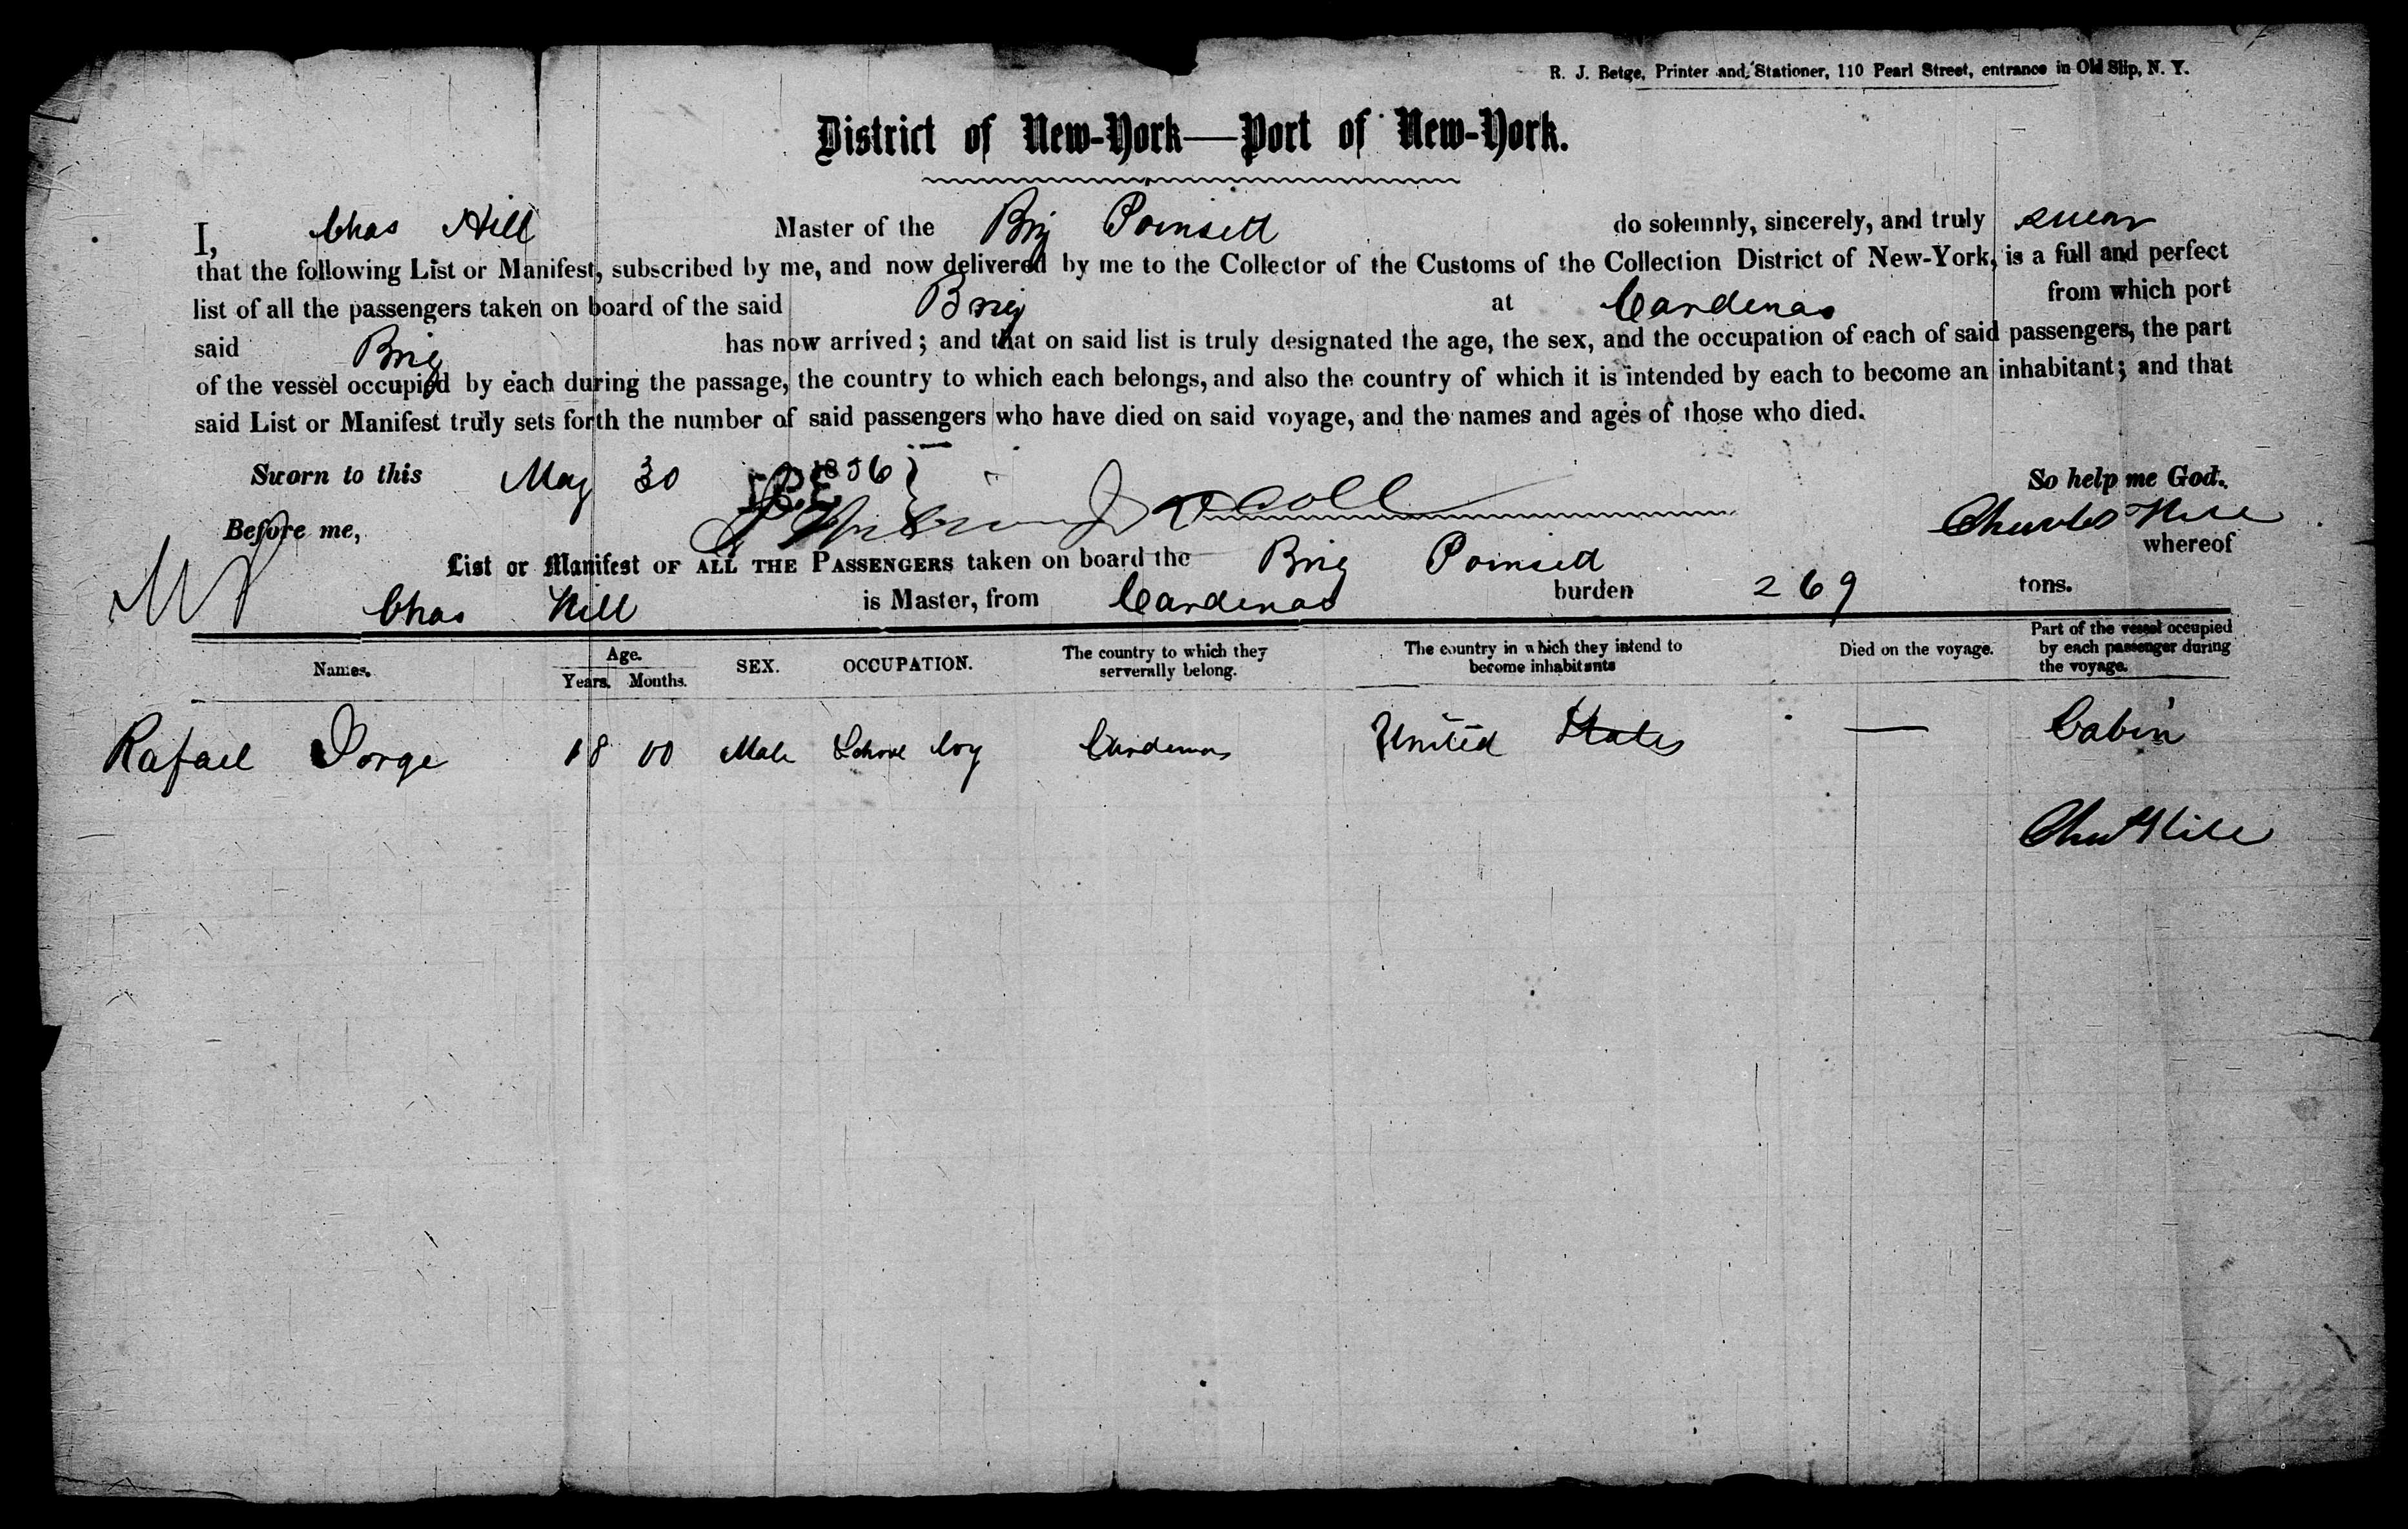 R. J. Betge, Printer and Stationer, 110 Pearl Street, entrance in Old Slip, N. Y.
District of New-York—Port of New-York.
I, Chas Hill Master of the Brig Poinsett do solemnly, sincerely, and truly swear
that the following List or Manifest, subscribed by me, and now delivered by me to the Collector of the Customs of the Collection District of New-York, is a full and perfect
list of all the passengers taken on board of the said Brig at Cardenas from which port
said Brig has now arrived; and that on said list is truly designated the age, the sex, and the occupation of each of said passengers, the part
of the vessel occupied by each during the passage, the country to which each belongs, and also the country of which it is intended by each to become an inhabitant; and that
said List or Manifest truly sets forth the number of said passengers who have died on said voyage, and the names and ages of those who died.
Sworn to this May 30 1856 So help me God.
Before me, Coll Charles Hill
List or Manifest OF ALL THE PASSENGERS taken on board the Brig Poinsett whereof
Chas Hill is Master, from Cardenas burden 269 tons.
Names. Age. Years. Months. SEX. OCCUPATION. The country to which they serverally belong. The country in which they intend to become inhabitants Died on the voyage. Part of the vessel occupied by each passenger during the voyage.
Rafael Jorge 18 00 Male School boy Cardenas United States — Cabin
Chas Hill